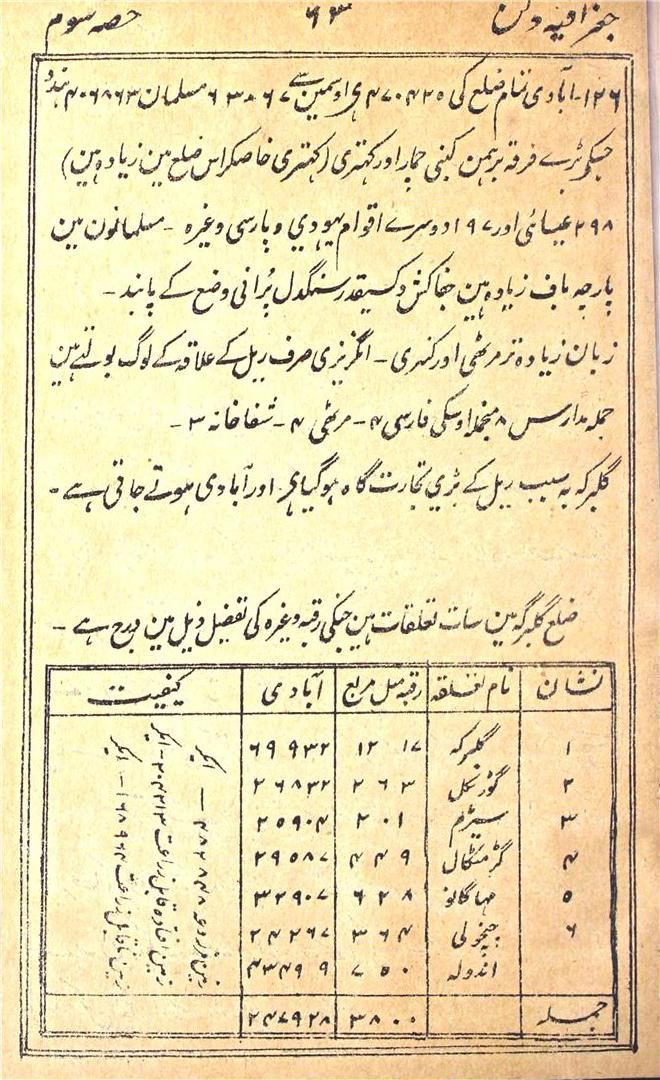 جغرافیہ دکن ۶۳ حصہ سوم
۱۲۶- آبادی تمام ضلع کی ۴۷۰۴۲۵ ہی اوسمین سے ۶۳۰۶۷ مسلمان ۴۰۶۸۶۳ ہندو
جسکے بڑے فرقہ برہمن کنبی چمار اور کہتری (کہتری خاصکر اس ضلع مین زیادہ ہین)
۲۹۸ عیسائی اور ۱۹۷ دوسرے اقوام یہودی و پارسی وغیرہ - مسلمانون مین
پارچہ باف زیادہ ہین جفاکش و کسیقدر سنگدل پُرانی وضع کے پابند -
زبان زیادہ تر مرہٹی اور کنہری - انگریزی صرف ریل کے علاقہ کے لوگ بولتے ہین
جملہ مدارس ۸ منجملہ اوسکی فارسی ۴ - مرہٹی ۴ - شفا خانہ ۳ -
گلبرگہ بہ سبب ریل کے بڑی تجارت گاہ ہوگیا ہی اور آبادی ہوتے جاتی ہے -
ضلع گلبرگہ مین سات تعلقات ہین جنکی رقبہ وغیرہ کی تفصیل ذیل مین درج ہے -
نشان نام تعلقہ رقبہ میل مربع آبادی کیفیت
۱ گلبرگہ ۱۲۱۷ ۶۹۹۳۲
۲ گوڑنگل ۲۶۳ ۲۶۸۳۲
۳ سیڑم ۲۰۱ ۲۵۹۰۴
۴ گرمٹکال ۴۴۹ ۲۹۵۸۷
۵ مہاگانو ۶۲۸ ۳۲۹۰۷
۶ چنچولی ۳۶۴ ۲۴۲۶۷
اندولہ ۷۵۰ ۴۳۴۹۹
جملہ ۳۸۰۰ ۲۴۷۹۲۸
زمین مزروعہ ۴۸۲۸۴۸ - ایکر
زمین افتادہ قابل زراعت ۲۰۴۲۱۳ - ایکر
زمین ناقابل زراعت ۱۶۸۹۶۴ - ایکر